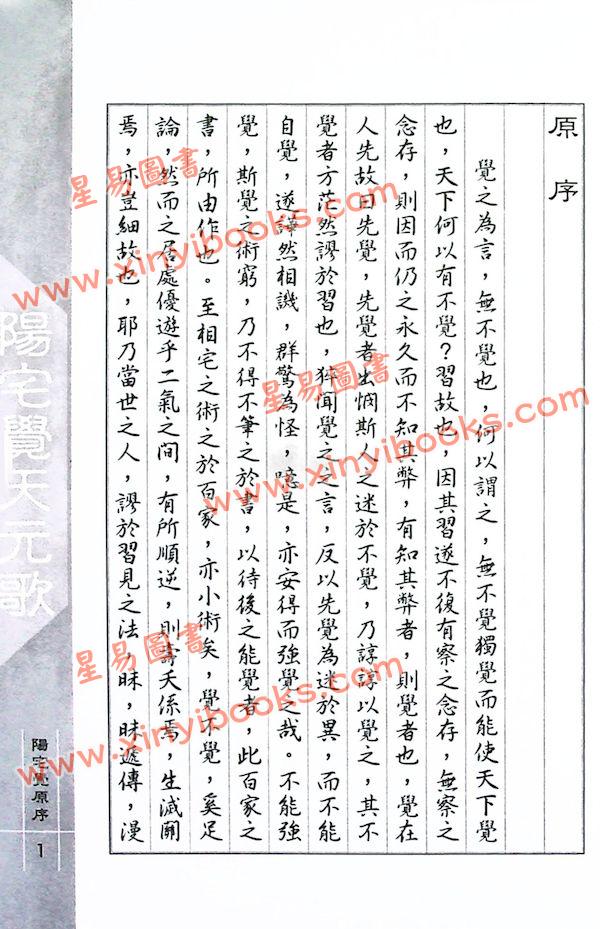 原序
覺之為言，無不覺也，何以謂之，無不覺獨覺而能使天下覺
也，天下何以有不覺？習故也，因其習遂不復有察之念存，無察之
念存，則因而仍之永久而不知其弊，有知其弊者，則覺者也，覺在
人先故曰先覺，先覺者出憫斯人之迷於不覺，乃諄諄以覺之，其不
覺者方茫然謬於習也，猝聞覺之之言，反以先覺為迷於異，而不能
自覺，遂譁然相譏，群驚為怪，噫是，亦安得而強覺之哉。不能強
覺，斯覺之術窮，乃不得不筆之於書，以待後之能覺者，此百家之
書，所由作也。至相宅之術之於百家，亦小術矣，覺不覺，奚足
論，然而之居處優遊乎二氣之间，有所順逆，則壽夭係焉，生滅關
焉，亦豈細故也，耶乃當世之人，謬於習見之法，昧，昧遞傳，漫
陽宅覺天元歌
陽宅覺原序
1
星易圖書
www.xinyibooks.com
星易圖書
www.xinyibooks.com
星易圖書
www.xinyibooks.com